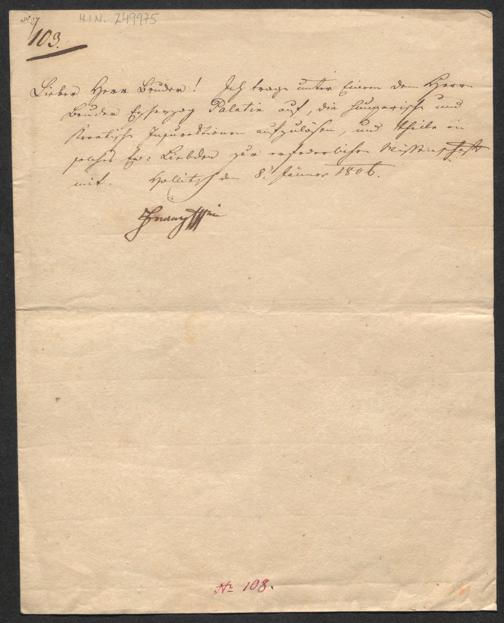 103.
H.I.N. 249975
Lieber Herr Bruder! Ich trage unter Einem dem Herrn
Bruder Erzherzog Palatin auf, die Hungarische und
Kroatische Insurectionen aufzulösen, und theile
solches Eu: Liebden zur erforderlichen Wissenschaft
mit. Hollitsch den 8. Jänner 1806.
Franz
Nr 108.